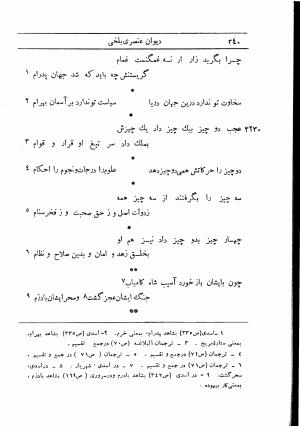 دیوان عنصری بلخی
۳۴۰
چرا بگرید زار ار نه غمگنست غمام
گریستنش چه باید که شد جهان پدرام ۱
*
سخاوت تو ندارد درین جهان دریا
سیاست تو ندارد بر آسمان بهرام ۲
*
۳۲۳۰ عجب دو چیز بیک چیز داد یک چیزش
بملک داد سر تیغ او قرار و قوام ۳
*
دو چیز را حرکاتش همی دو چیز دهد
علوم را درجات و نجوم را احکام ۴
*
سه چیز را بگرفتند از سه چیز همه
ز دولت اصل و ز حق صحبت و ز فخر سنام ۵
*
چهار چیز بدو چیز داد نیز هم او
بخلق زهد و امان و بدین صلاح و نظام ۶
*
چون بایشان باز خورد آسیب شاه کامیاب ۷
جنگ ایشان عجز گشت ۸ و سحر ایشان بادزم ۹
**
۱ - اسدی (ص ۳۳۵) بشاهد پدرام، بمعنی خرم. ۲ - اسدی (ص ۳۳۵) بشاهد بهرام،
بمعنی ستارهٔ مریخ. ۳ - ترجمان البلاغه (ص ۷۰) در جمع و تقسیم.
۴ - ترجمان (ص ۷۱) در جمع و تقسیم. ۵ - ترجمان (ص ۷۱) در جمع و تقسیم.
۶ - ترجمان (ص ۷۱) در جمع و تقسیم. ۷ - در اسدی: شهریار. ۸ - در اسدی:
سحر گشت. ۹ - در اسدی (ص ۳۴۷) بشاهد بادزم و در سروری (ص ۱۶۹) بشاهد بادزم،
بمعنی کار بیهوده.